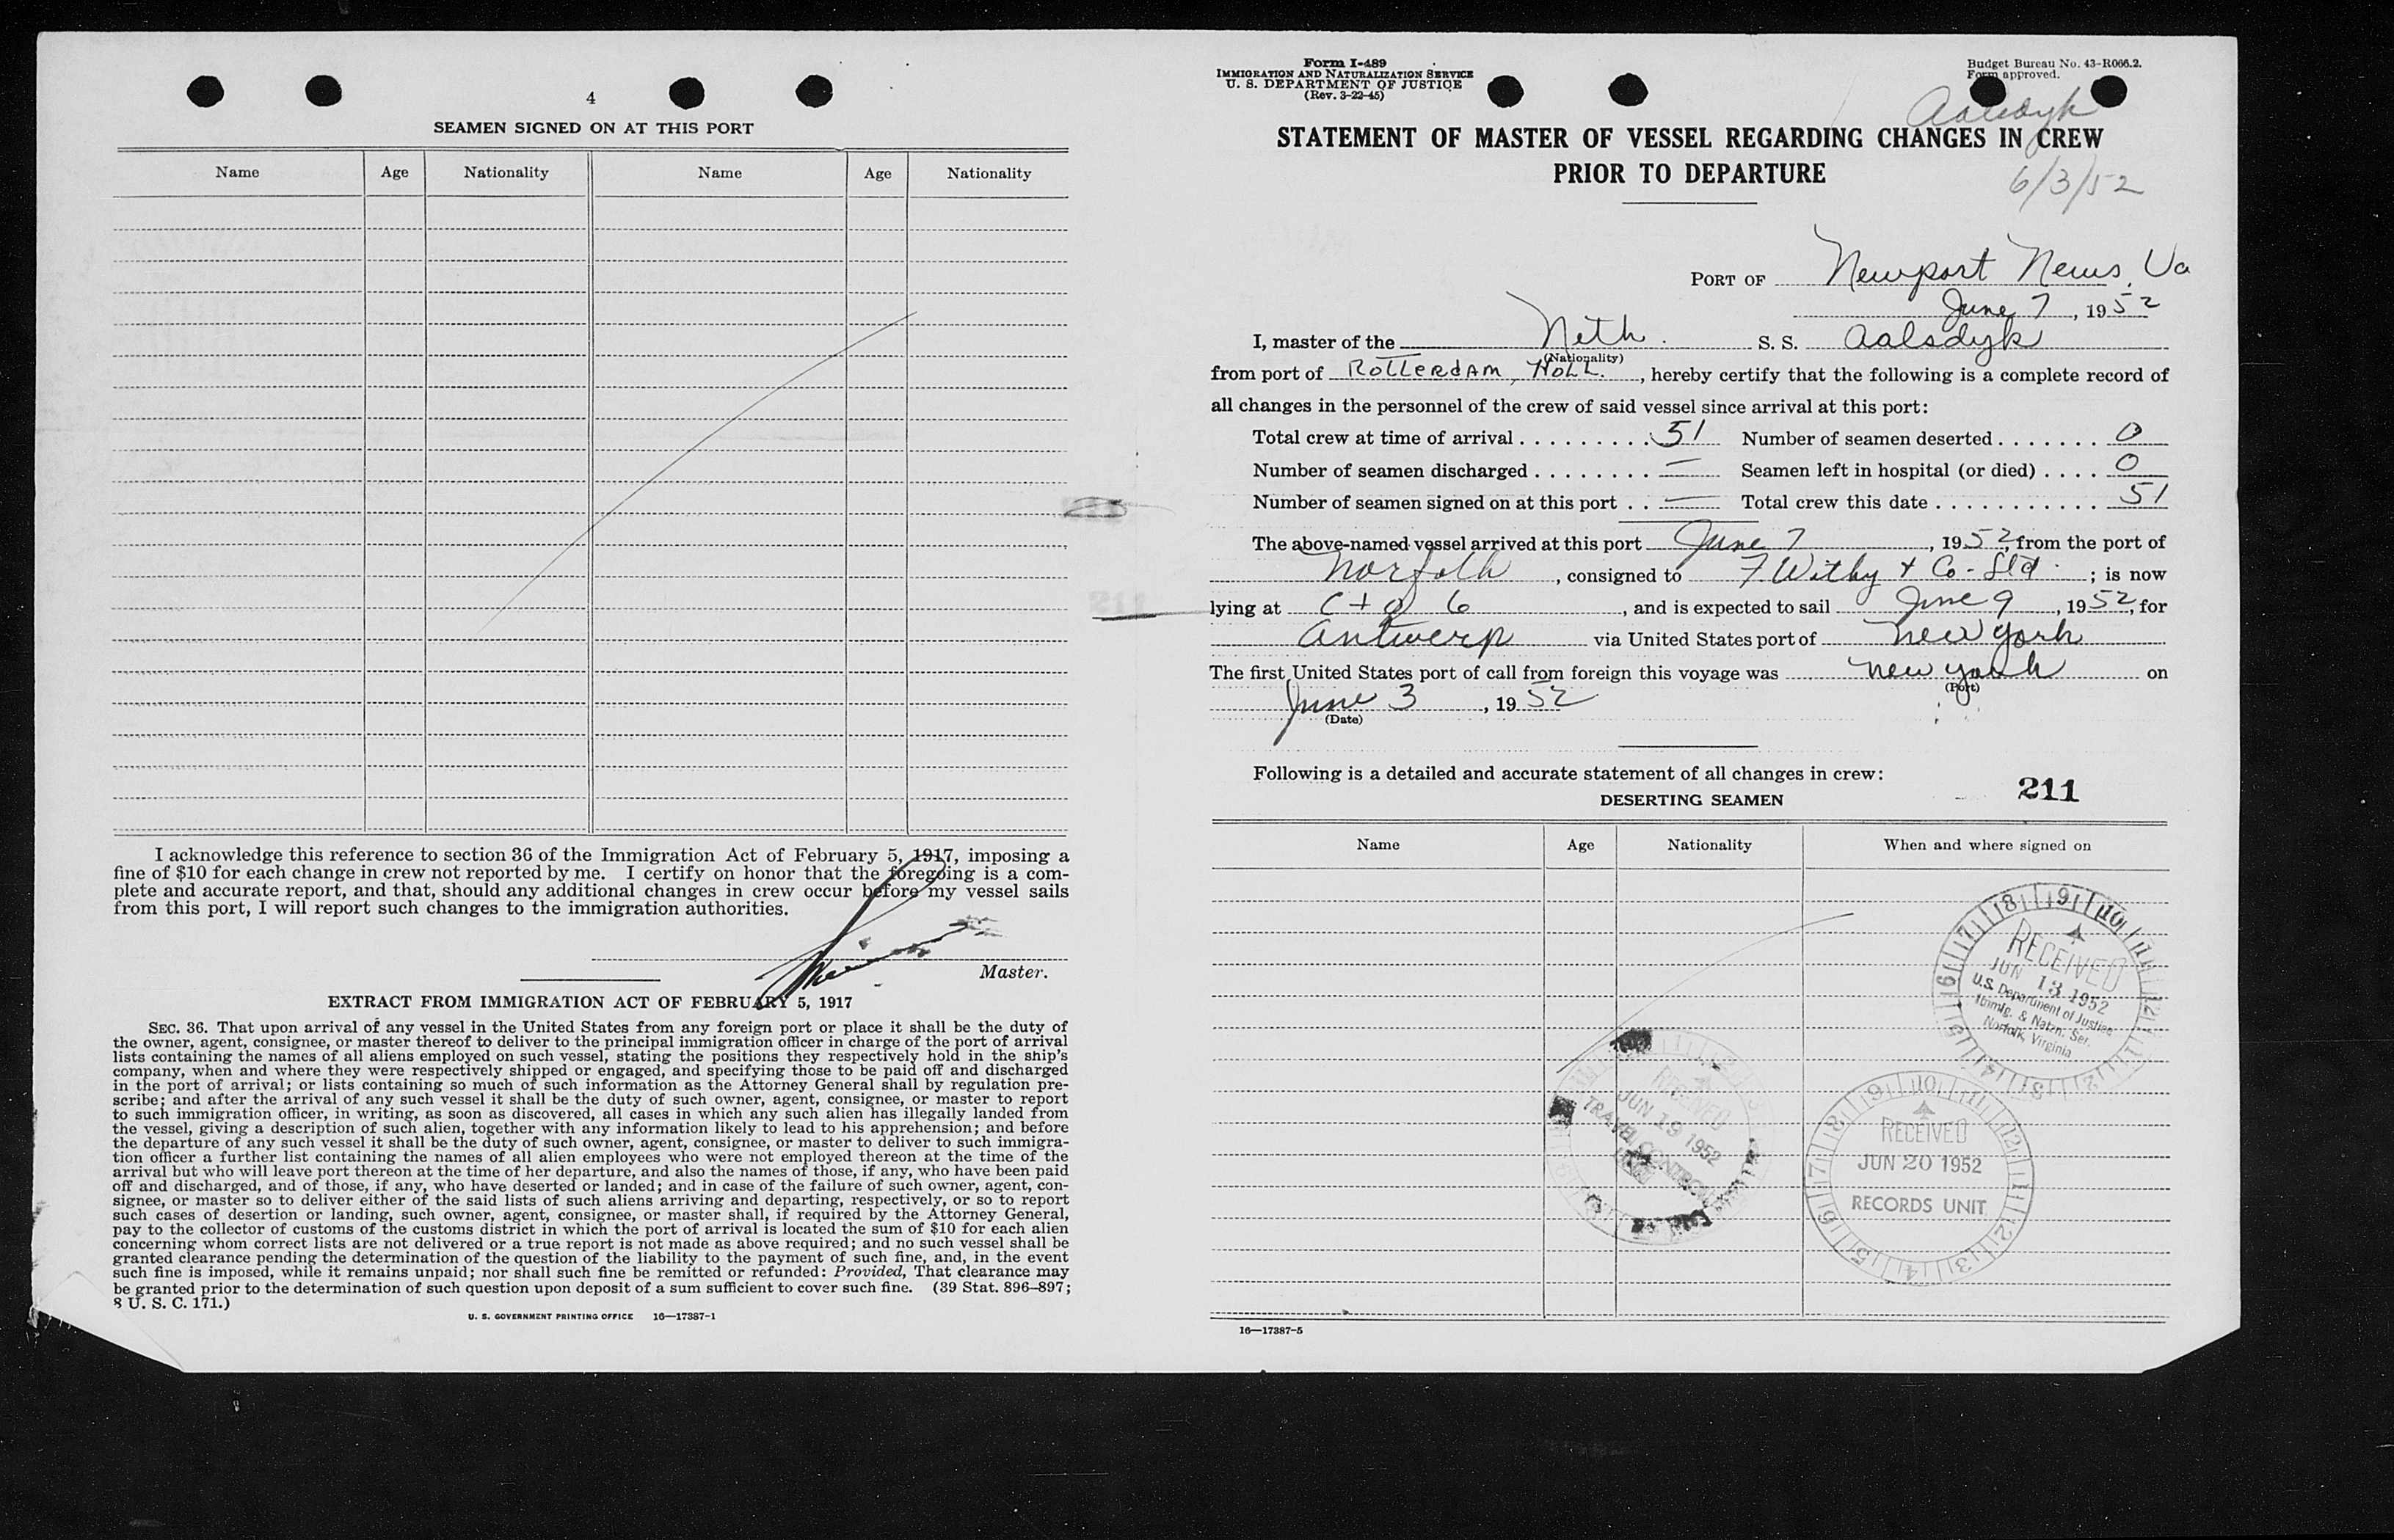 4
SEAMEN SIGNED ON AT THIS PORT
Name Age Nationality Name Age Nationality
I acknowledge this reference to section 36 of the Immigration Act of February 5, 1917, imposing a
fine of $10 for each change in crew not reported by me. I certify on honor that the foregoing is a com-
plete and accurate report, and that, should any additional changes in crew occur before my vessel sails
from this port, I will report such changes to the immigration authorities.
Master.
EXTRACT FROM IMMIGRATION ACT OF FEBRUARY 5, 1917
SEC. 36. That upon arrival of any vessel in the United States from any foreign port or place it shall be the duty of
the owner, agent, consignee, or master thereof to deliver to the principal immigration officer in charge of the port of arrival
lists containing the names of all aliens employed on such vessel, stating the positions they respectively hold in the ship's
company, when and where they were respectively shipped or engaged, and specifying those to be paid off and discharged
in the port of arrival; or lists containing so much of such information as the Attorney General shall by regulation pre-
scribe; and after the arrival of any such vessel it shall be the duty of such owner, agent, consignee, or master to report
to such immigration officer, in writing, as soon as discovered, all cases in which any such alien has illegally landed from
the vessel, giving a description of such alien, together with any information likely to lead to his apprehension; and before
the departure of any such vessel it shall be the duty of such owner, agent, consignee, or master to deliver to such immigra-
tion officer a further list containing the names of all alien employees who were not employed thereon at the time of the
arrival but who will leave port thereon at the time of her departure, and also the names of those, if any, who have been paid
off and discharged, and of those, if any, who have deserted or landed; and in case of the failure of such owner, agent, con-
signee, or master so to deliver either of the said lists of such aliens arriving and departing, respectively, or so to report
such cases of desertion or landing, such owner, agent, consignee, or master shall, if required by the Attorney General,
pay to the collector of customs of the customs district in which the port of arrival is located the sum of $10 for each alien
concerning whom correct lists are not delivered or a true report is not made as above required; and no such vessel shall be
granted clearance pending the determination of the question of the liability to the payment of such fine, and, in the event
such fine is imposed, while it remains unpaid; nor shall such fine be remitted or refunded: Provided, That clearance may
be granted prior to the determination of such question upon deposit of a sum sufficient to cover such fine. (39 Stat. 896–897;
8 U. S. C. 171.)
U. S. GOVERNMENT PRINTING OFFICE 16—17387-1
Form I-489
IMMIGRATION AND NATURALIZATION SERVICE
U. S. DEPARTMENT OF JUSTICE
(Rev. 3-22-45)
Budget Bureau No. 43-R066.2.
Form approved.
Aalsdyk
STATEMENT OF MASTER OF VESSEL REGARDING CHANGES IN CREW
PRIOR TO DEPARTURE
6/3/52
PORT OF Newport News, Va
June 7, 1952
I, master of the Neth. S. S. Aalsdyk
(Nationality)
from port of Rotterdam, Holl., hereby certify that the following is a complete record of
all changes in the personnel of the crew of said vessel since arrival at this port:
Total crew at time of arrival . . . . . . . . . 51 Number of seamen deserted . . . . . . . 0
Number of seamen discharged . . . . . . . . — Seamen left in hospital (or died) . . . . 0
Number of seamen signed on at this port . . — Total crew this date . . . . . . . . . . . 51
The above-named vessel arrived at this port June 7, 1952, from the port of
Norfolk, consigned to F Withy & Co. Ltd.; is now
lying at C + O 6, and is expected to sail June 9, 1952, for
Antwerp via United States port of New York
The first United States port of call from foreign this voyage was New York on
(Port)
June 3, 1952
(Date)
Following is a detailed and accurate statement of all changes in crew:
211
DESERTING SEAMEN
Name Age Nationality When and where signed on
RECEIVED
JUN 13 1952
U.S. Department of Justice
Immig. & Natzn. Ser.
Norfolk, Virginia
RECEIVED
JUN 19 1952
TRAVEL CONTROL
RECEIVED
JUN 20 1952
RECORDS UNIT
16—17387-5